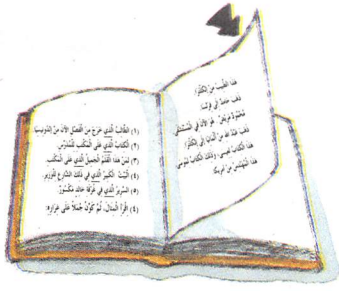 هَذَا الطَّبِيبُ مِنْ إِنْكِلْتَرَّا.
ذَهَبَ حَامِدٌ إِلَى فَرَنْسَا.
هُوَ الآنَ فِي الْمُسْتَشْفَى
ذَهَبَ عَبْدُ اللهِ مِنْ إِلَى
هَذَا الْكِتَابُ لِعِيسَى، وَذَلِكَ الْكِتَابُ لِمُوسَى
هَذَا الْمُهَنْدِسُ مِنْ أَمْرِيكَا
(١) الطَّالِبُ الَّذِي خَرَجَ مِنَ الْفَصْلِ الآنَ مِنْ إِنْدُونِيسِيَا.
(٢) الْكِتَابُ الَّذِي عَلَى الْمَكْتَبِ لِلْمُدَرِّسِ.
(٣) لِمَنْ هَذَا الْقَلَمُ الْجَمِيلُ الَّذِي عَلَى الْمَكْتَبِ.
(٤) الْبَيْتُ الْكَبِيرُ الَّذِي فِي ذَلِكَ الشَّارِعِ لِلْوَزِيرِ.
(٥) السَّرِيرُ الَّذِي فِي غُرْفَةِ خَالِدٍ مَكْسُورٌ.
(٤) اقْرَأِ الْمِثَالَ، ثُمَّ كَوِّنْ جُمَلاً عَلَى غِرَارِهِ: